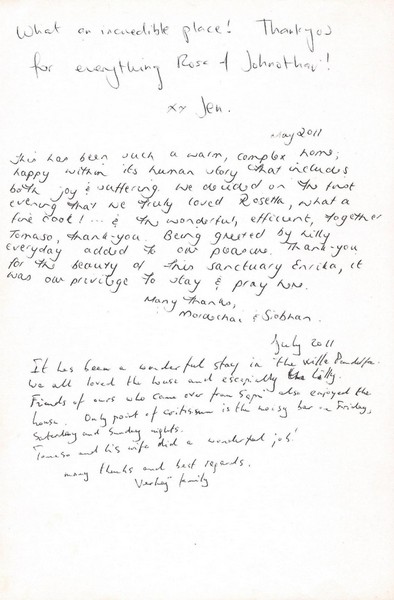 What an incredible place! Thankyou
for everything Rosa & Johnothan!
xx Jen.
May 2011
This has been such a warm, complex home;
happy within its human story that includes
both joy & suffering. We decided on the first
evening that we truly loved Rosella, what a
fine cook! ... & the wonderful, efficient, together
Tomaso, thank-you. Being greeted by Lilly
everyday added to our pleasure. Thank-you
for the beauty of this sanctuary Enrika, it
was our privilege to stay & pray here.
Many Thanks,
Mordechai & Siobhan.
July 2011
It has been a wonderful stay in the Villa
We all loved the house and escpially the Lilly.
Friends of ours who came over from also enjoyed the
house. Only point of critissum is the noisy bar on Friday,
Saturday and Sunday nights.
Tomaso and his wife did a wonderful job!
many thanks and best regards.
family